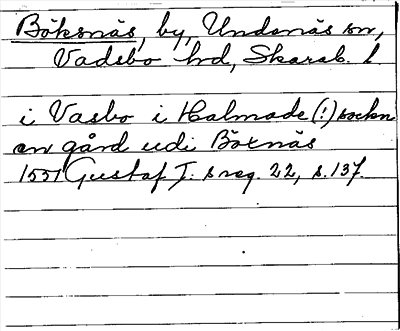 Böksnäs, by, Undenäs sn,
Vadsbo hd, Skarab. l.
i Vasbo i Halmade (!) sockn
en gård udi Böxnäs
1551 Gustaf I:s reg. 22, s. 137.